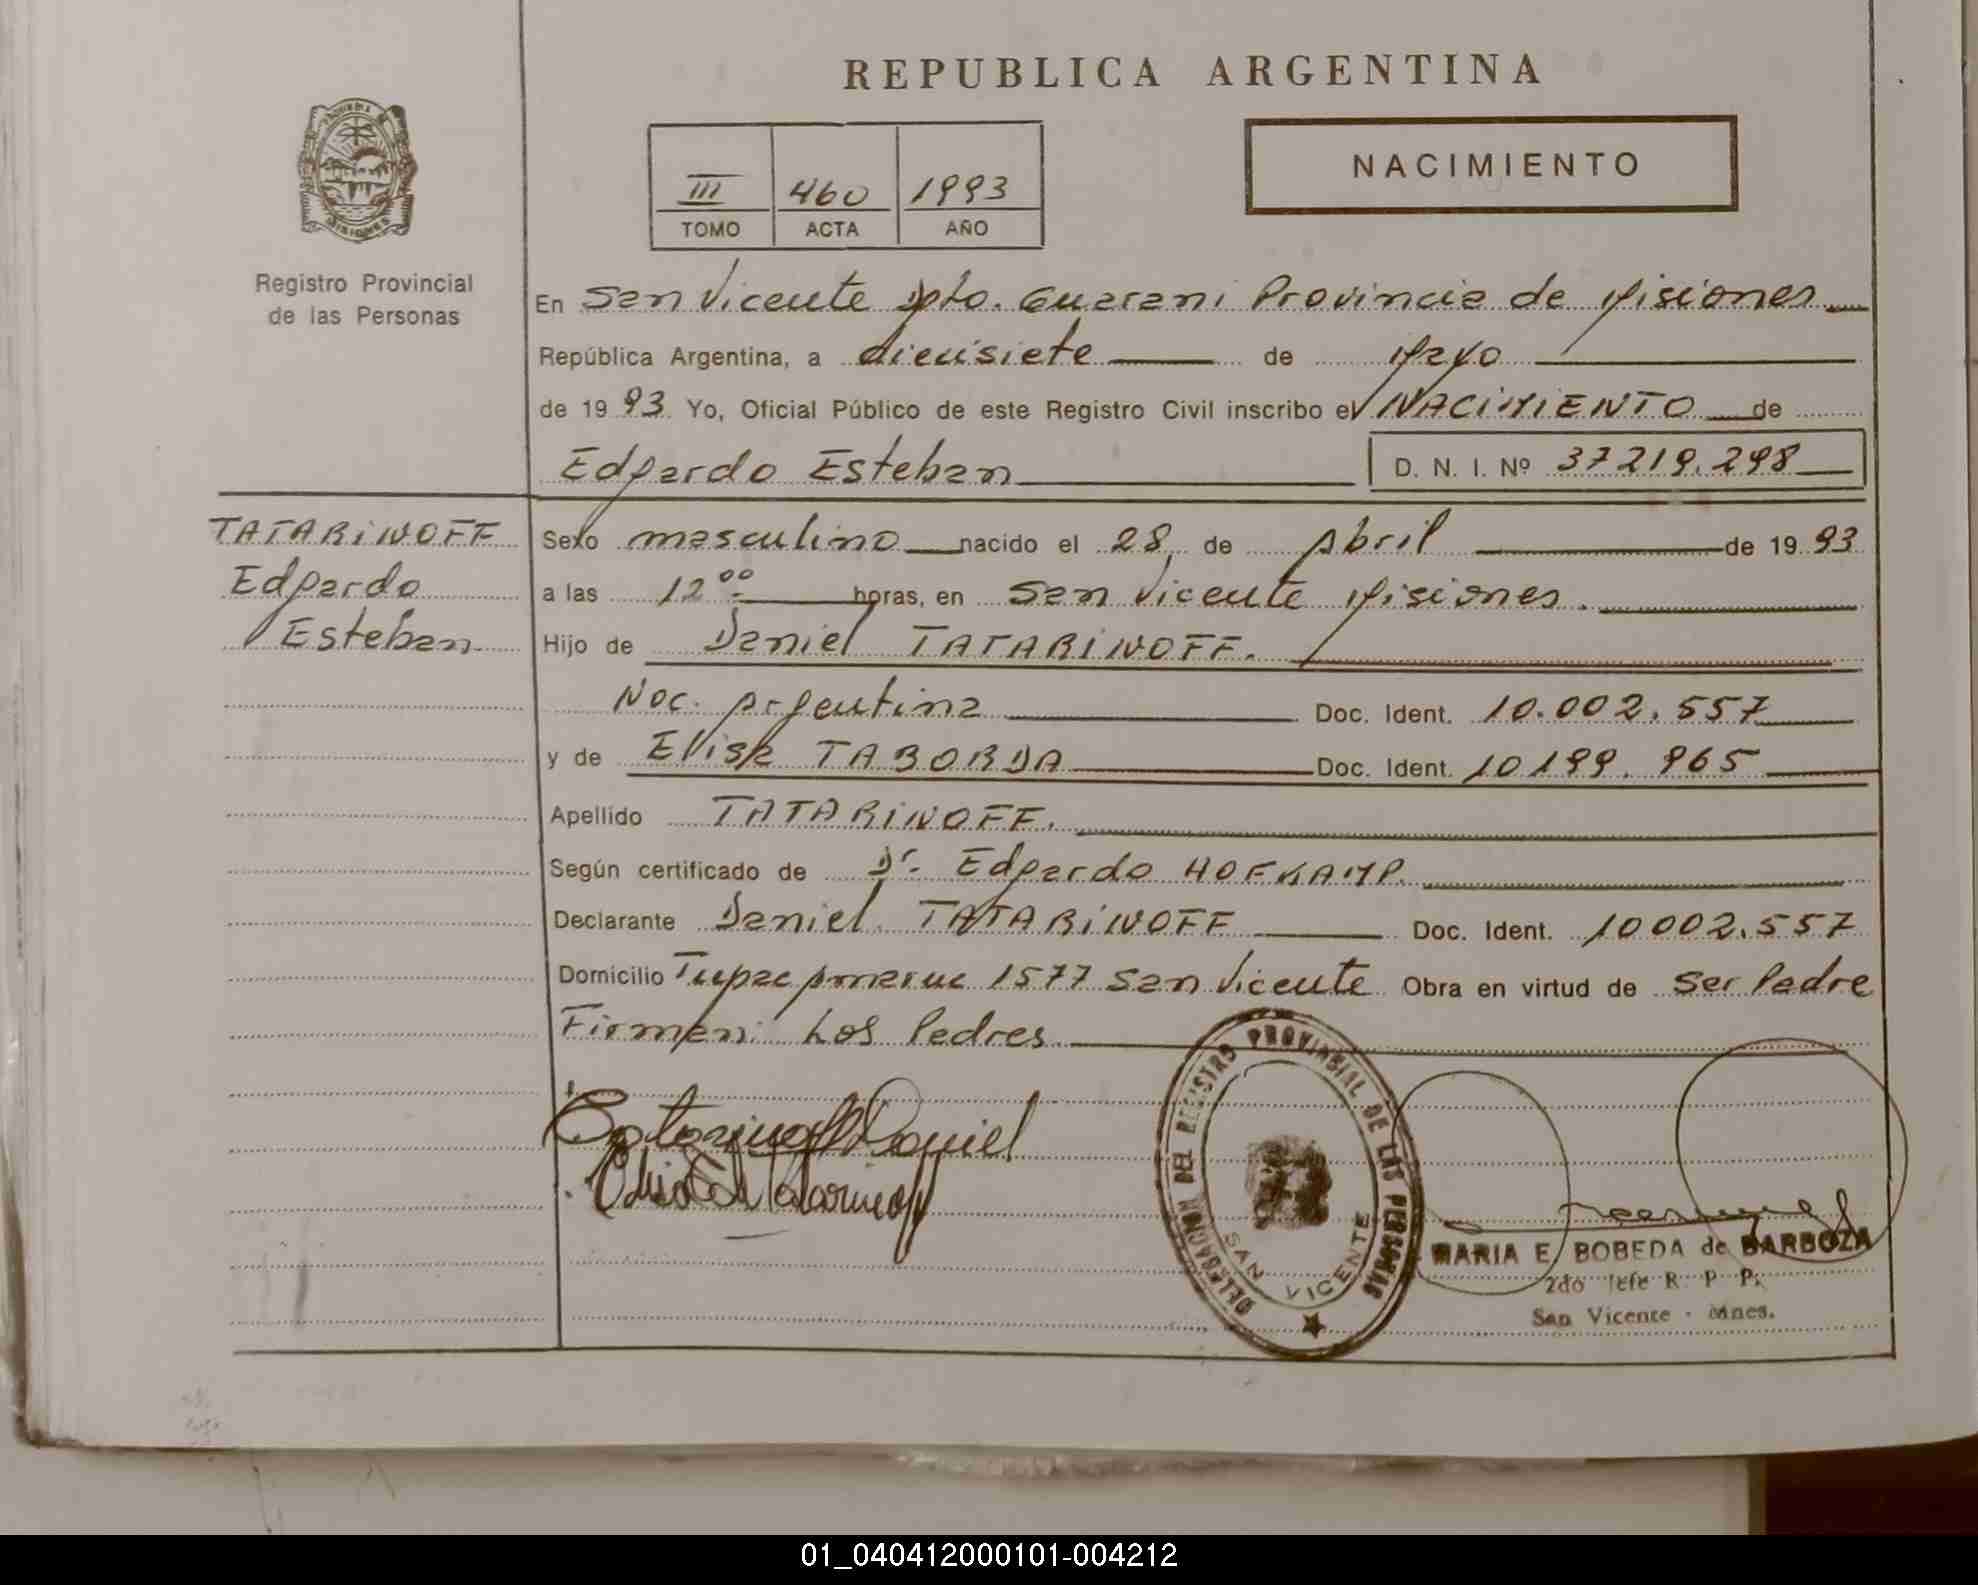 REPUBLICA ARGENTINA
NACIMIENTO
III 460 1993
TOMO ACTA AÑO
Registro Provincial
de las Personas
En San Vicente Dpto. Guarani Provincia de Misiones
República Argentina, a diecisiete de Mayo
de 1993 Yo, Oficial Público de este Registro Civil inscribo el NACIMIENTO de
Edgardo Esteban D. N. I. Nº 37219.298
TATARINOFF
Edgardo
Esteban
Sexo masculino nacido el 28 de Abril de 1993
a las 12 00 horas, en San Vicente Misiones.
Hijo de Daniel TATARINOFF.
Nac. Argentina Doc. Ident. 10.002.557
y de Elisa TABORDA Doc. Ident. 10199.965
Apellido TATARINOFF.
Según certificado de Dr. Edgardo HOFKAMP.
Declarante Daniel TATARINOFF Doc. Ident. 10002.557
Domicilio Tupac Amaruc 1577 San Vicente Obra en virtud de Ser Padre
Firman: Los Padres
Daniel
DELEGACION DEL REGISTRO PROVINCIAL DE LAS PERSONAS
SAN VICENTE
MARIA E. BOBEDA de BARBOZA
2do Jefe R. P. P.
San Vicente - Mnes.
01_040412000101-004212